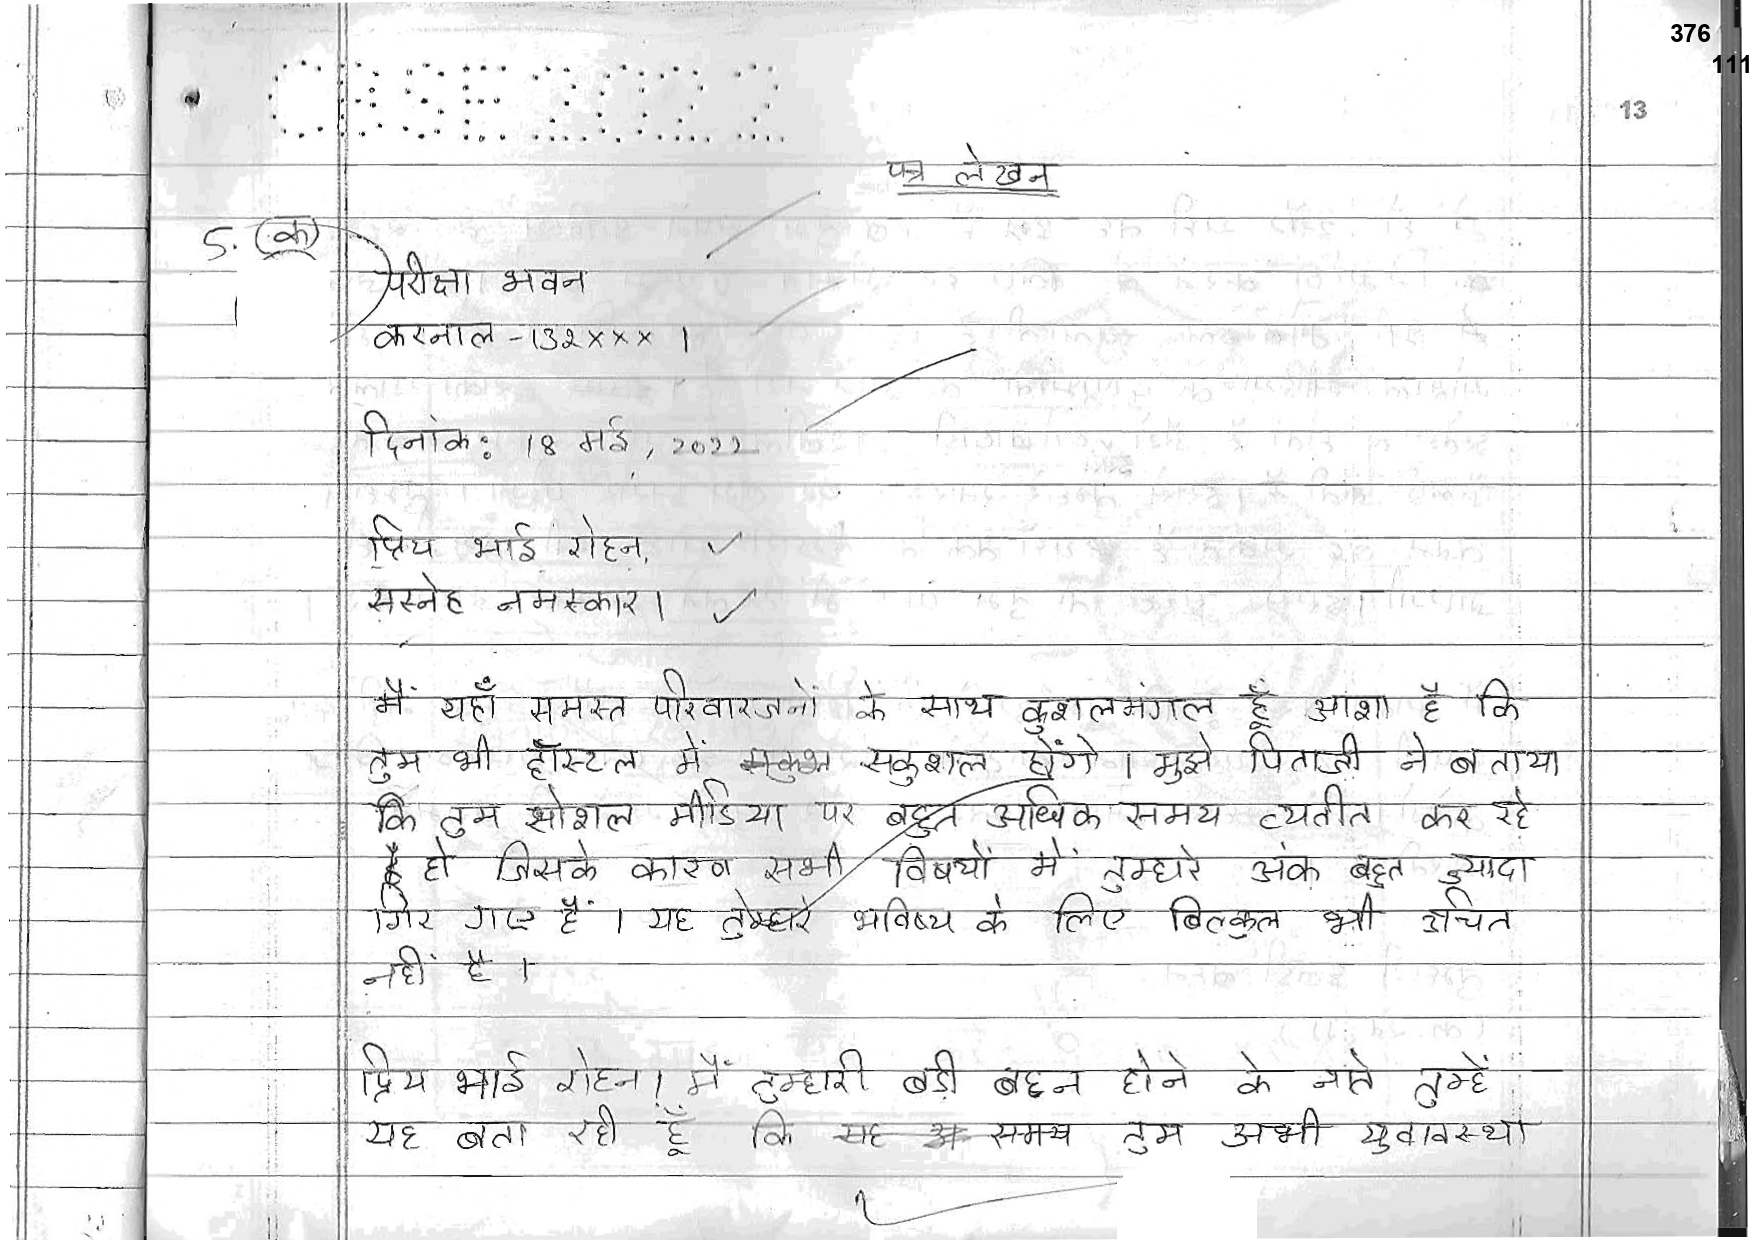 376
111
CBSE 2022
13
पत्र लेखन
5. (क)
परीक्षा भवन
करनाल - 132××× ।
दिनांक: 18 मई, 2022
प्रिय भाई रोहन,
सस्नेह नमस्कार।
मैं यहाँ समस्त परिवारजनों के साथ कुशलमंगल हूँ आशा है कि
तुम भी हॉस्टल में सकुश सकुशल होंगे । मुझे पिताजी ने बताया
कि तुम सोशल मीडिया पर बहुत अधिक समय व्यतीत कर रहे
है हो जिसके कारण सभी विषयों में तुम्हारे अंक बहुत ज़्यादा
गिर गए हैं । यह तुम्हारे भविष्य के लिए बिल्कुल भी उचित
नहीं है ।
प्रिय भाई रोहन! मैं तुम्हारी बड़ी बहन होने के नाते तुम्हें
यह बता रही हूँ कि यह अ समय तुम अभी युवावस्था